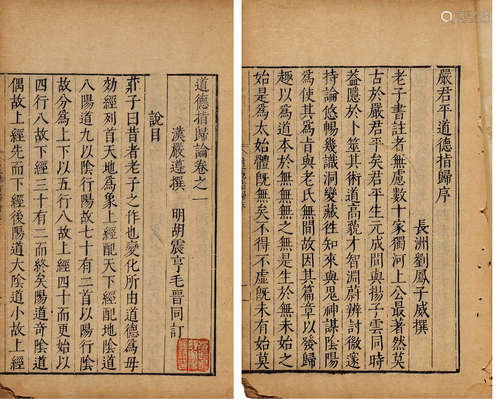 嚴君平道德指歸序
長洲劉鳳子威撰
老子書註者無慮數十家獨河上公最著然莫
古於嚴君平矣君平生元成間與揚子雲同時
益隱於卜筮其術道高藐才智淵蔚辨討微邃
持論悠暢幾識洞變藏往知來與鬼神謀陰陽
為使其爲旨與老氏無間故因其篇章以發歸
趣以為道本於無無無之無是生於無未始之
始是為太始體旣無矣不得不虛旣未有始莫
道德指歸論卷之一
漢嚴遵撰 明胡震亨毛晉同訂
說目
莊子曰昔者老子之作也變化所由道德為母
効經列首天地為象上經配天下經配地陰道
八陽道九以陰行陽故七十有二首以陽行陰
故分為上下以五行八故上經四十而更始以
四行八故下經三十有二而終矣陽道奇陰道
偶故上經先而下經後陽道大陰道小故上經